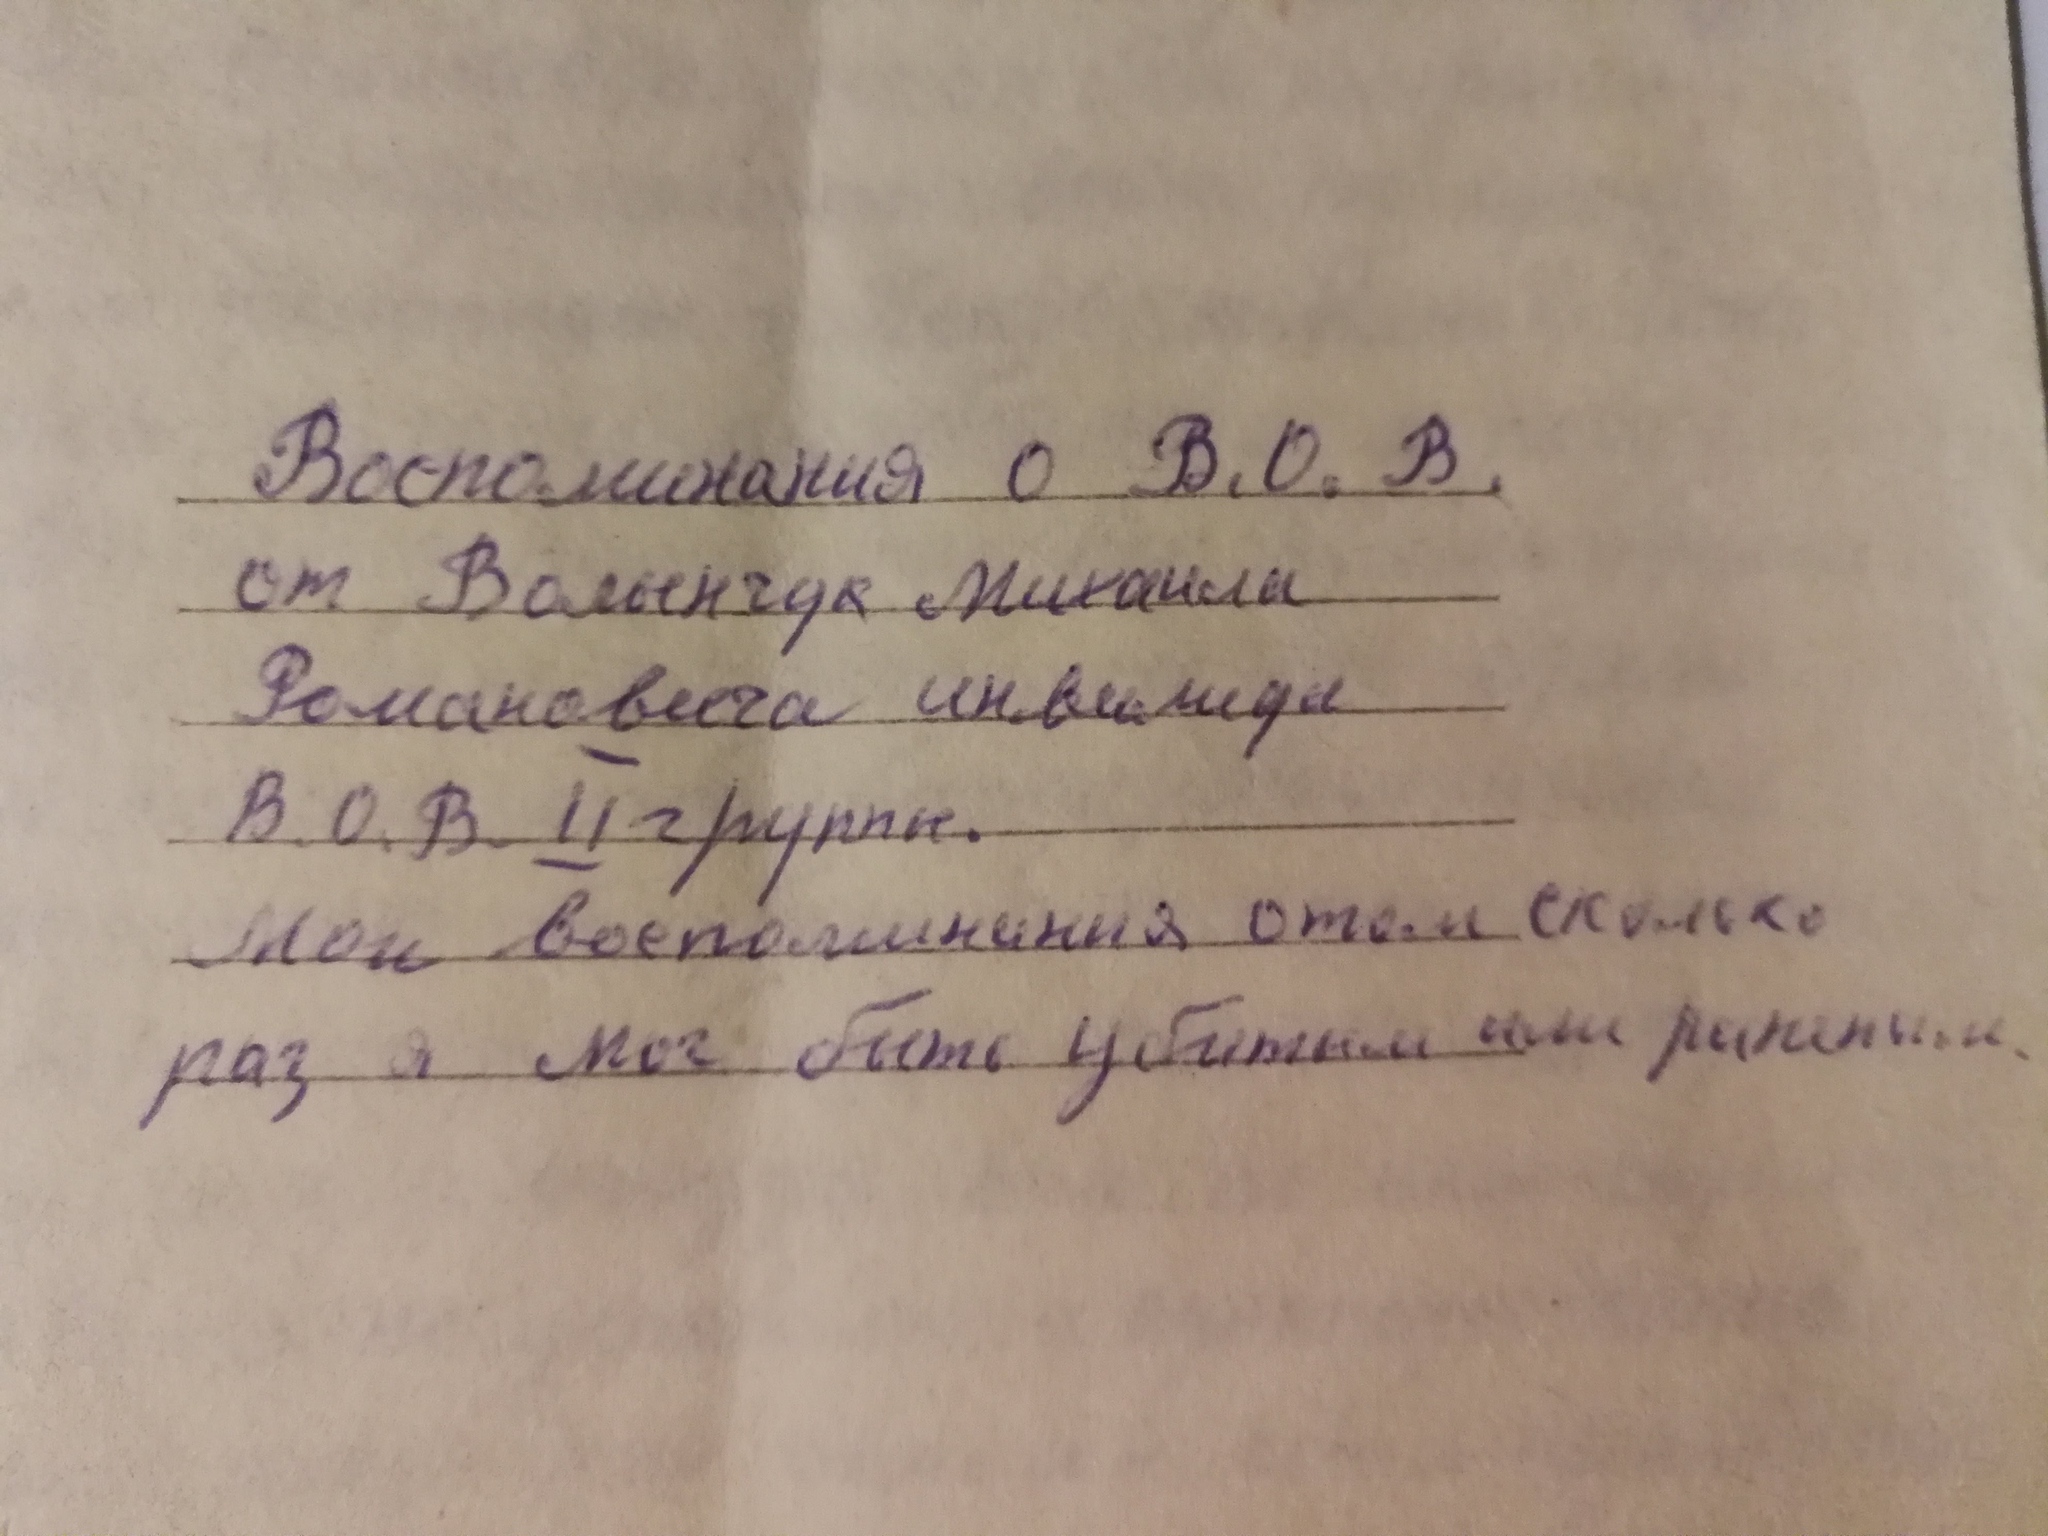 Воспоминания о В.О.В.
от Михаила
Романовича инвалида
В.О.В. II группы.
Мои воспоминания отом сколько
раз я мог быть убитым или раненым.